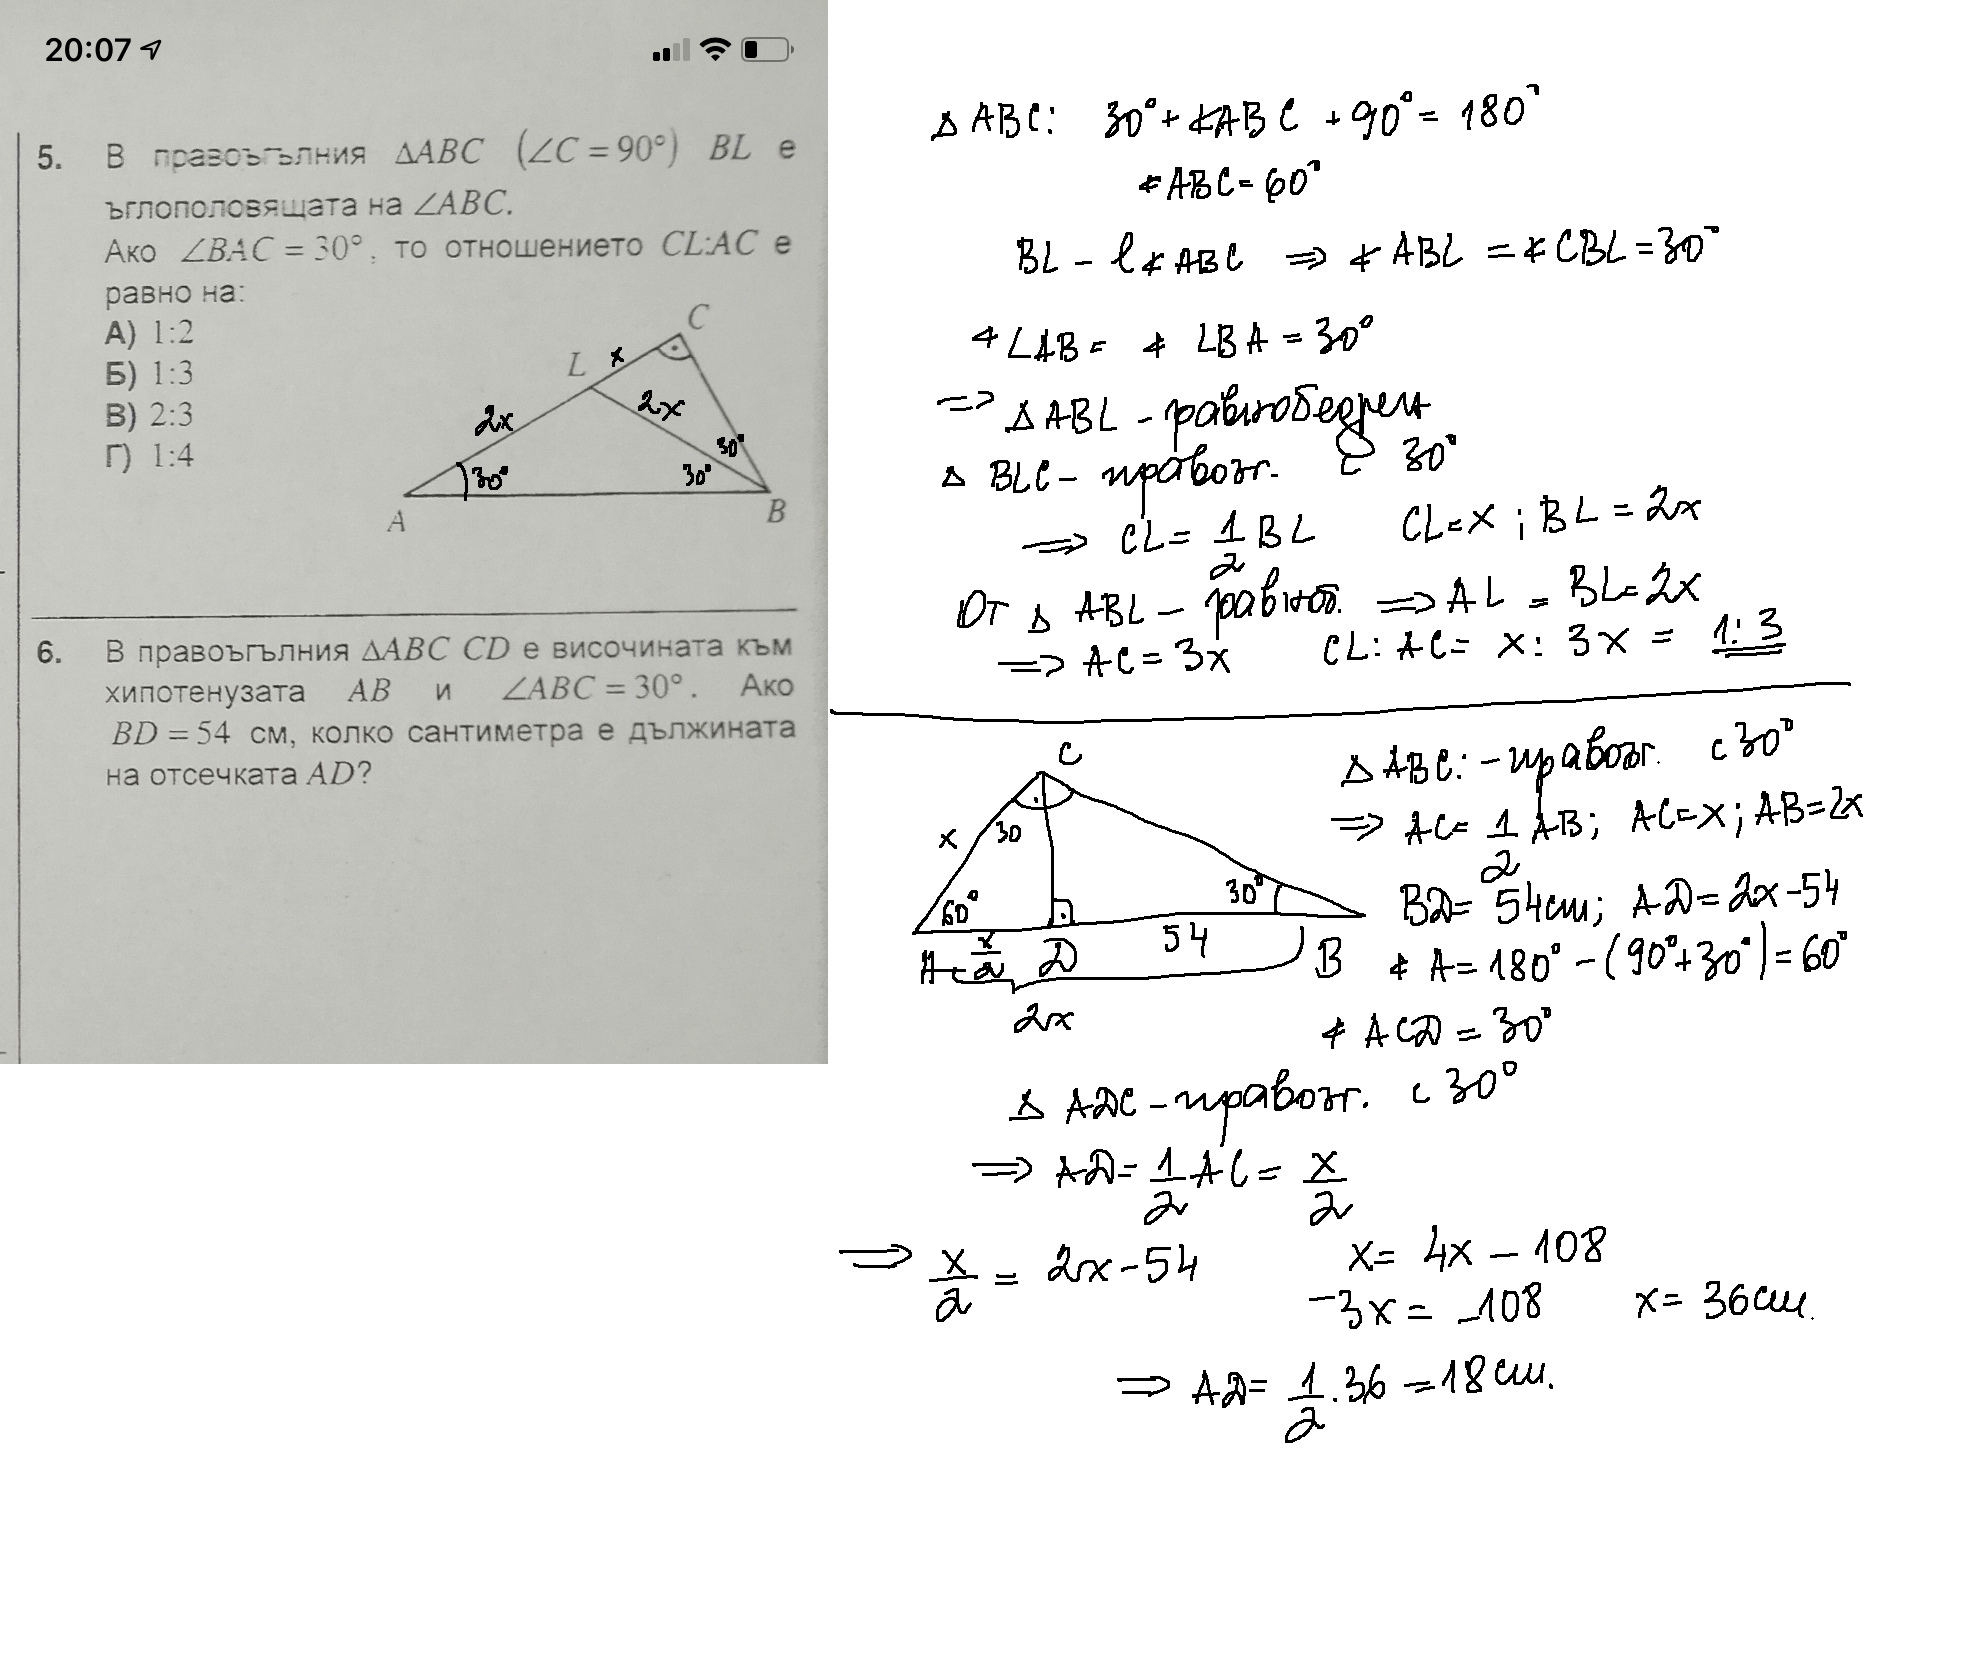 20:07
5. В правоъгълния ΔABC (∠C = 90°) BL е
ъглополовящата на ∠ABC.
Ако ∠BAC = 30°, то отношението CL:AC е
равно на:
А) 1:2
Б) 1:3
В) 2:3
Г) 1:4
C
L
x
2x
2x
30°
30°
30°
A
B
6. В правоъгълния ΔABC CD е височината към
хипотенузата AB и ∠ABC = 30°. Ако
BD = 54 см, колко сантиметра е дължината
на отсечката AD?
Δ ABC: 30° + ∢ABC + 90° = 180°
∢ABC = 60°
BL – l ∢ ABC ⇒ ∢ ABL = ∢ CBL = 30°
∢ LAB = ∢ LBA = 30°
⇒ Δ ABL – равнобедрен
Δ BLC – правоъг. с 30°
⇒ CL = 1/2 BL CL = x ; BL = 2x
От Δ ABL – равноб. ⇒ AL = BL = 2x
⇒ AC = 3x CL : AC = x : 3x = 1:3
C
x
30
60°
30°
A
x/2
D
54
B
2x
Δ ABC: – правоъг. с 30°
⇒ AC = 1/2 AB; AC = x; AB = 2x
BD = 54см; AD = 2x – 54
∢ A = 180° – (90° + 30°) = 60°
∢ ACD = 30°
Δ ADC – правоъг. с 30°
⇒ AD = 1/2 AC = x/2
⇒ x/2 = 2x – 54 x = 4x – 108
–3x = –108 x = 36см.
⇒ AD = 1/2 . 36 = 18см.